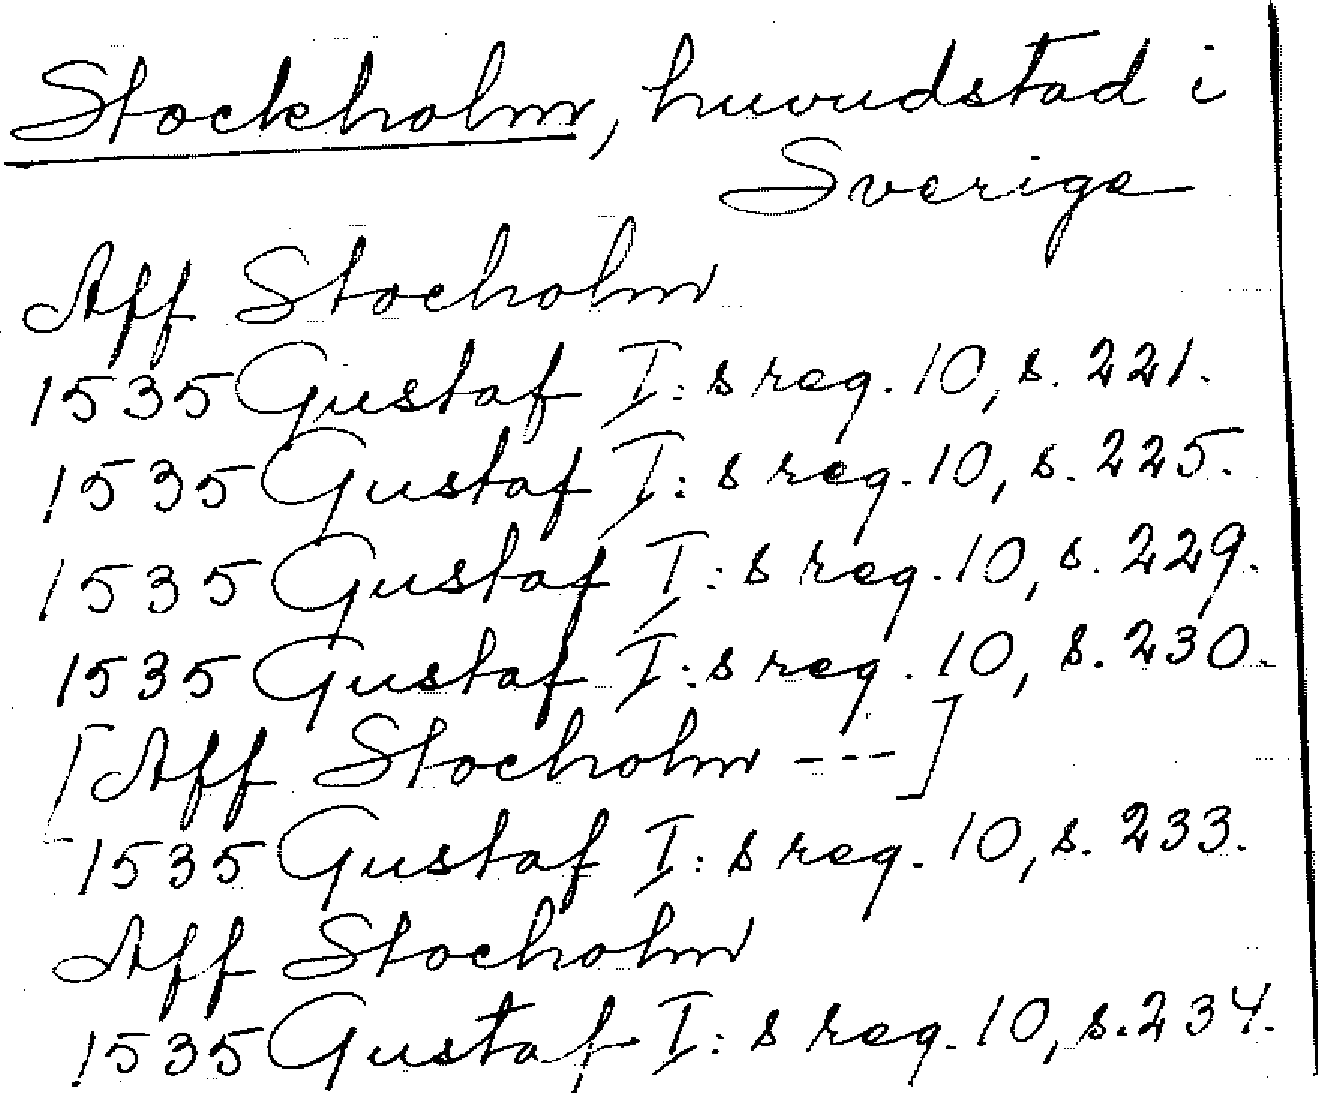 Stockholm, huvudstad i
Sverige
Aff Stocholm
1535 Gustaf I:s reg. 10, s. 221.
1535 Gustaf I:s reg. 10, s. 225.
1535 Gustaf I:s reg. 10, s. 229.
1535 Gustaf I:s reg. 10, s. 230.
[Aff Stocholm ---]
1535 Gustaf I:s reg. 10, s. 233.
Aff Stocholm
1535 Gustaf I:s reg. 10, s. 234.